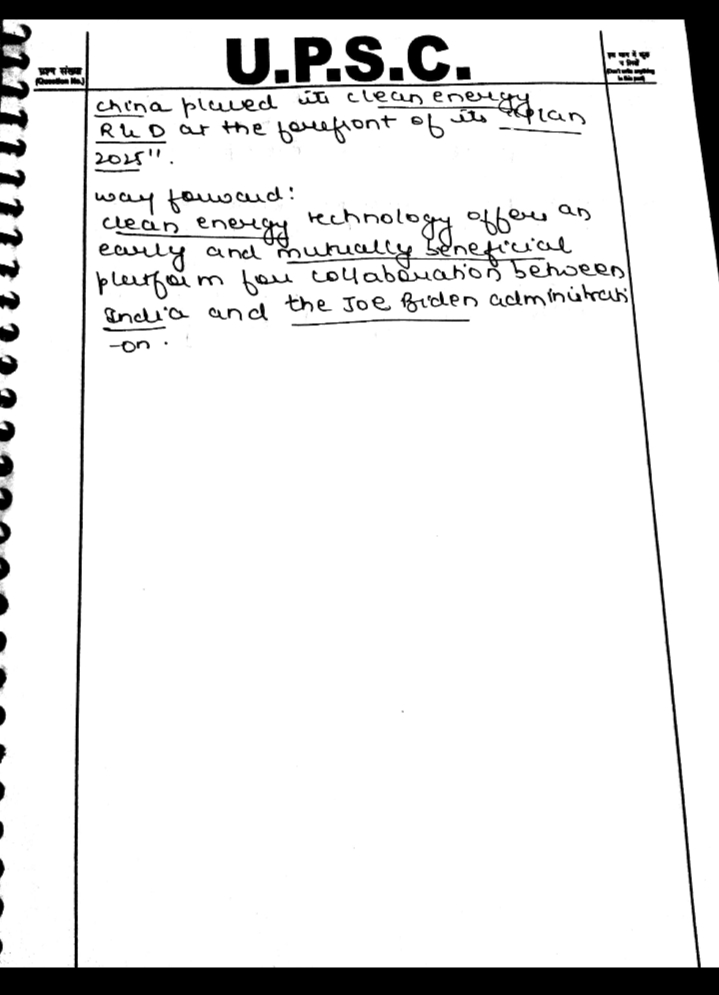 U.P.S.C.
प्रश्न संख्या
(Question No.)
इस भाग में कुछ
न लिखें
(Don't write anything
in this part)
china placed its clean energy
R & D at the forefront of its "Plan
2025".
way forward:
clean energy technology offers an
early and mutually beneficial
platform for collaboration between
India and the Joe Biden administrati
-on.